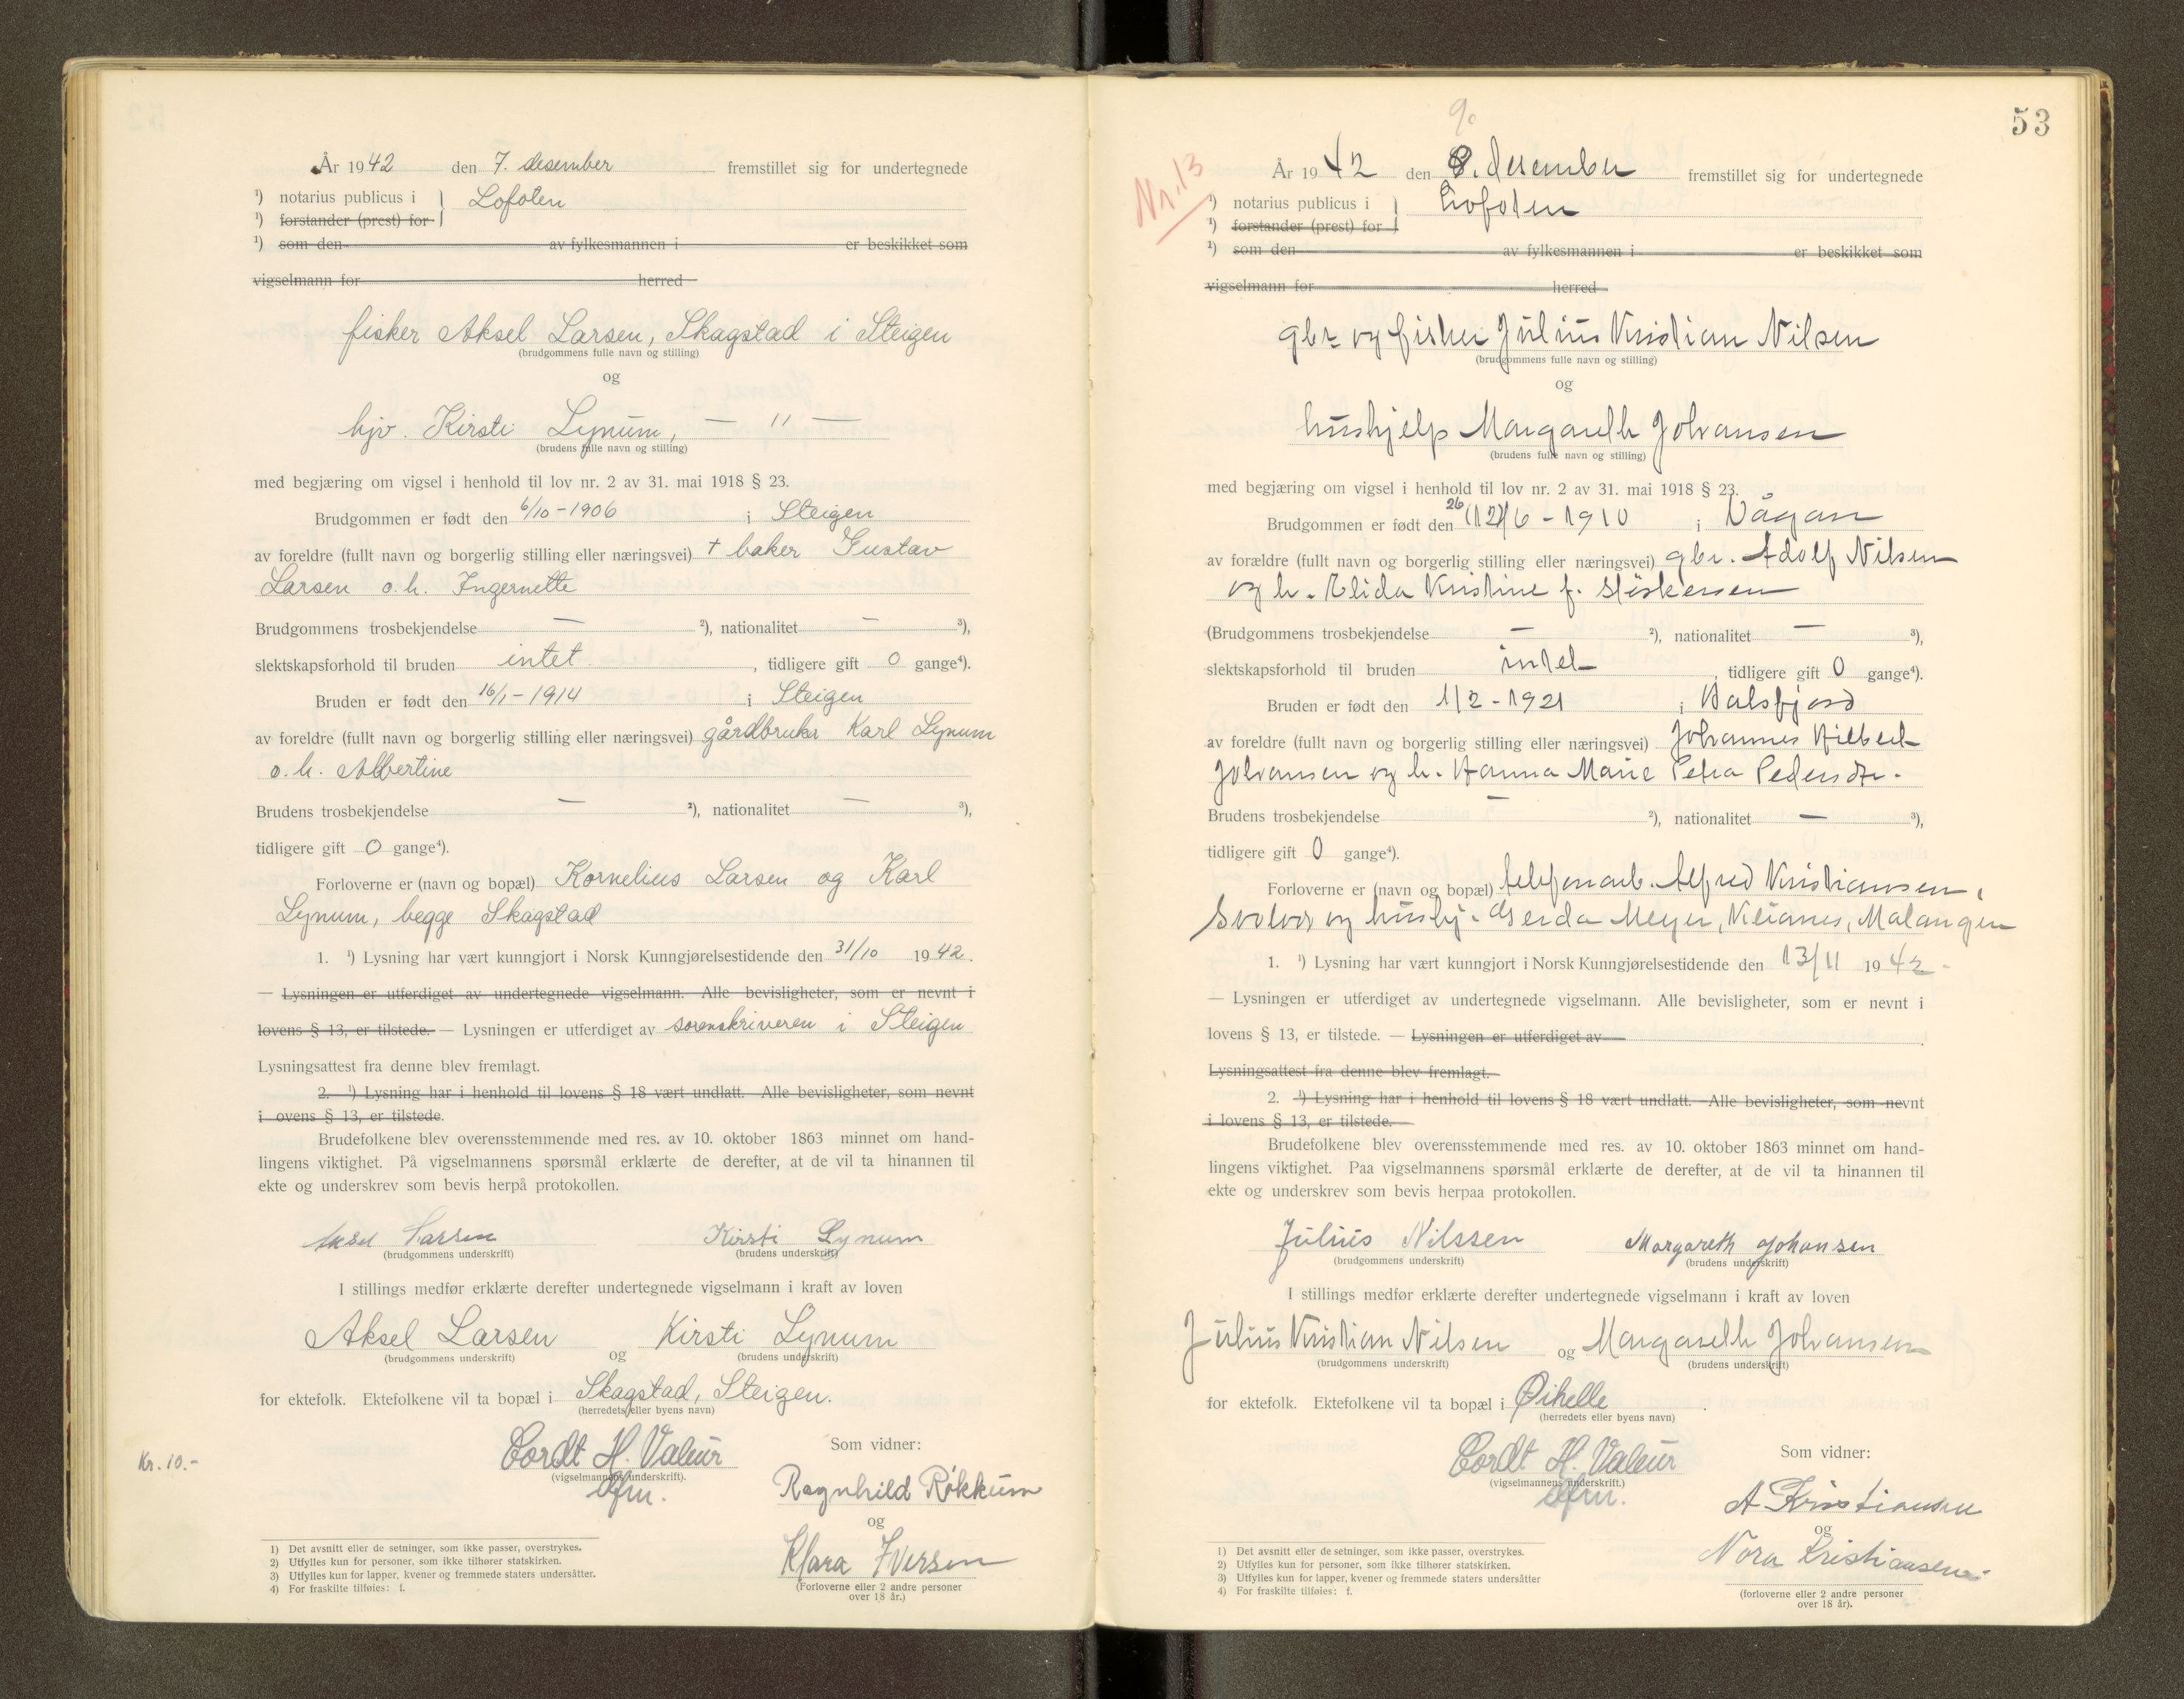 År 1942 den 7. desember fremstillet sig for undertegnede
¹) notarius publicus i } Lofoten
¹) forstander (prest) for
¹) som den av fylkesmannen i er beskikket som
vigselmann for herred
fisker Aksel Larsen, Skagstad i Steigen
(brudgommens fulle navn og stilling)
og
hjv. Kirsti Lynum, — " —
(brudens fulle navn og stilling)
med begjæring om vigsel i henhold til lov nr. 2 av 31. mai 1918 § 23.
Brudgommen er født den 6/10-1906 i Steigen
av foreldre (fullt navn og borgerlig stilling eller næringsvei) + baker Gustav
Larsen o.h. Ingernette
Brudgommens trosbekjendelse — ²), nationalitet — ³),
slektskapsforhold til bruden intet, tidligere gift 0 gange⁴).
Bruden er født den 16/1-1914 i Steigen
av foreldre (fullt navn og borgerlig stilling eller næringsvei) gårdbruker Karl Lynum
o.h. Albertine
Brudens trosbekjendelse — ²), nationalitet — ³),
tidligere gift 0 gange⁴).
Forloverne er (navn og bopæl) Kornelius Larsen og Karl
Lynum, begge Skagstad
1. ¹) Lysning har vært kunngjort i Norsk Kunngjørelsestidende den 31/10 1942.
— Lysningen er utferdiget av undertegnede vigselmann. Alle bevisligheter, som er nevnt i
lovens § 13, er tilstede. — Lysningen er utferdiget av sorenskriveren i Steigen
Lysningsattest fra denne blev fremlagt.
2. ¹) Lysning har i henhold til lovens § 18 vært undlatt. Alle bevisligheter, som nevnt
i ovens § 13, er tilstede.
Brudefolkene blev overensstemmende med res. av 10. oktober 1863 minnet om hand-
lingens viktighet. På vigselmannens spørsmål erklærte de derefter, at de vil ta hinannen til
ekte og underskrev som bevis herpå protokollen.
Aksel Larsen Kirsti Lynum
(brudgommens underskrift) (brudens underskrift)
I stillings medfør erklærte derefter undertegnede vigselmann i kraft av loven
Aksel Larsen og Kirsti Lynum
(brudgommens underskrift) (brudens underskrift)
for ektefolk. Ektefolkene vil ta bopæl i Skagstad, Steigen.
(herredets eller byens navn)
Kr. 10.-
Cordt H. Valeur
(vigselmannens underskrift).
Som vidner:
Ragnhild Røkkum
og
Klara Iversen
(Forloverne eller 2 andre personer
over 18 år.)
1) Det avsnitt eller de setninger, som ikke passer, overstrykes.
2) Utfylles kun for personer, som ikke tilhører statskirken.
3) Utfylles kun for lapper, kvener og fremmede staters undersåtter.
4) For fraskilte tilføies: f.
53
9.
Nr. 13
År 1942 den 8. desember fremstillet sig for undertegnede
¹) notarius publicus i } Lofoten
¹) forstander (prest) for
¹) som den av fylkesmannen i er beskikket som
vigselmann for herred
gbr og fisker Julius Kristian Nilsen
(brudgommens fulle navn og stilling)
og
hushjelp Margareth Johansen
(brudens fulle navn og stilling)
med begjæring om vigsel i henhold til lov nr. 2 av 31. mai 1918 § 23.
Brudgommen er født den 26 (12)/6-1910 i Vågan
av forældre (fullt navn og borgerlig stilling eller næringsvei) gbr. Adolf Nilsen
og h. Elida Kristine f.
(Brudgommens trosbekjendelse — ²), nationalitet — ³),
slektskapsforhold til bruden intet, tidligere gift 0 gange⁴).
Bruden er født den 1/2-1921 i Balsfjord
av foreldre (fullt navn og borgerlig stilling eller næringsvei) Johannes Hilbert
Johansen og h. Hanna Marie Petra Pedersdtr.
Brudens trosbekjendelse — ²), nationalitet — ³),
tidligere gift 0 gange⁴).
Forloverne er (navn og bopæl) telefonarb. Alfred Kristiansen,
Svolvær og hushj. Gerda Meyer, Malangen
1. ¹) Lysning har vært kunngjort i Norsk Kunngjørelsestidende den 13/11 1942.
— Lysningen er utferdiget av undertegnede vigselmann. Alle bevisligheter, som er nevnt i
lovens § 13, er tilstede. — Lysningen er utferdiget av
Lysningsattest fra denne blev fremlagt.
2. ¹) Lysning har i henhold til lovens § 18 vært undlatt. Alle bevisligheter, som nevnt
i lovens § 13, er tilstede.
Brudefolkene blev overensstemmende med res. av 10. oktober 1863 minnet om hand-
lingens viktighet. Paa vigselmannens spørsmål erklærte de derefter, at de vil ta hinannen til
ekte og underskrev som bevis herpaa protokollen.
Julius Nilssen Margareth Johansen
(brudgommens underskrift) (brudens underskrift)
I stillings medfør erklærte derefter undertegnede vigselmann i kraft av loven
Julius Kristian Nilsen og Margareth Johansen
(brudgommens underskrift) (brudens underskrift)
for ektefolk. Ektefolkene vil ta bopæl i Øihelle.
(herredets eller byens navn)
Cordt H. Valeur
(vigselmannens underskrift.)
Som vidner:
A Kristiansen
og
Nora Kristiansen
(forloverne eller 2 andre personer
over 18 år).
1) Det avsnitt eller de setninger, som ikke passer, overstrykes.
2) Utfylles kun for personer, som ikke tilhører statskirken.
3) Utfylles kun for lapper, kvener og fremmede staters undersåtter
4) For fraskilte tilføies: f.